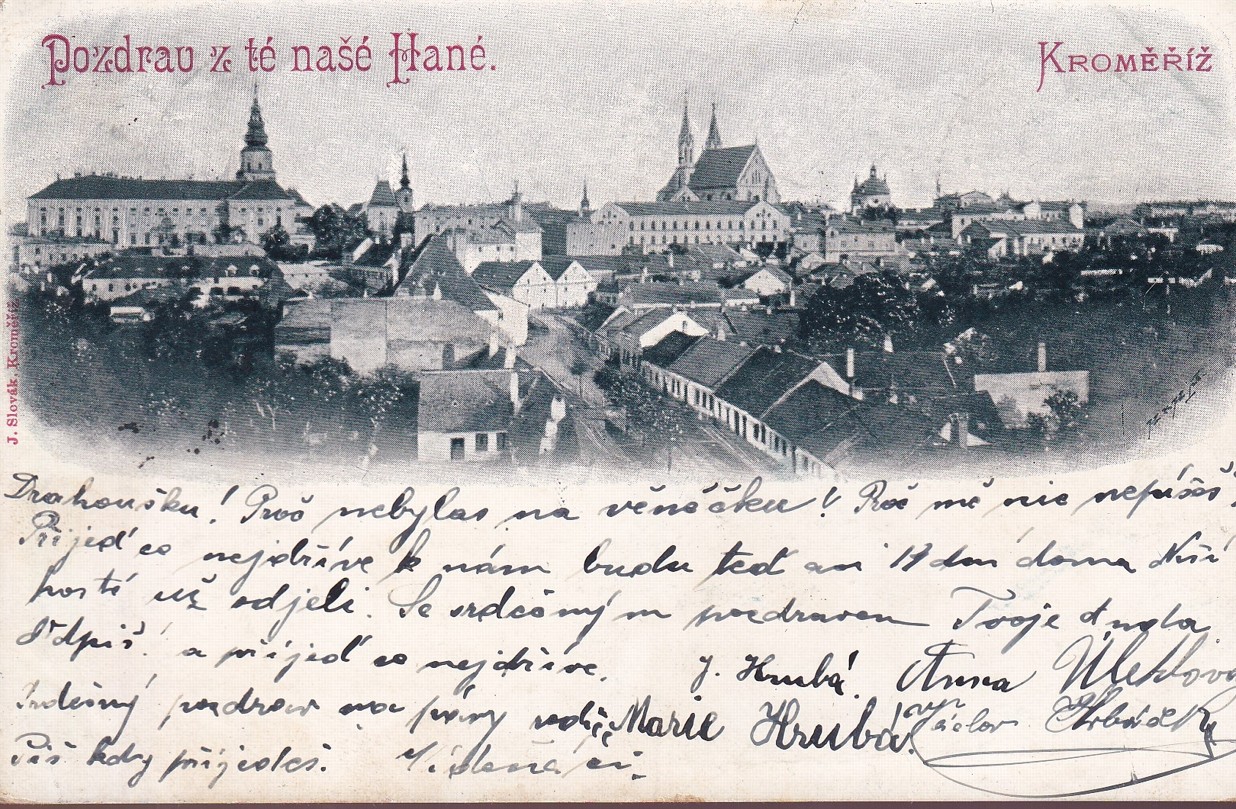 Pozdrav z té našé Hané.
Kroměříž
J. Slovák, Kroměříž
Drahoušku! Proč nebylas na věnečku! Proč mě nic nepíšeš
Přijeď co nejdříve k nám budu teď asi 14 dní doma Naši
hosti už odjeli. Se srdečným pozdravem Tvoje Anda
Odpiš! a přijeď co nejdříve.
J. Hrubá. Anna
Srdečný pozdrav na p
Marie Hrubá.
Václav
Piš kdy přijedeš.